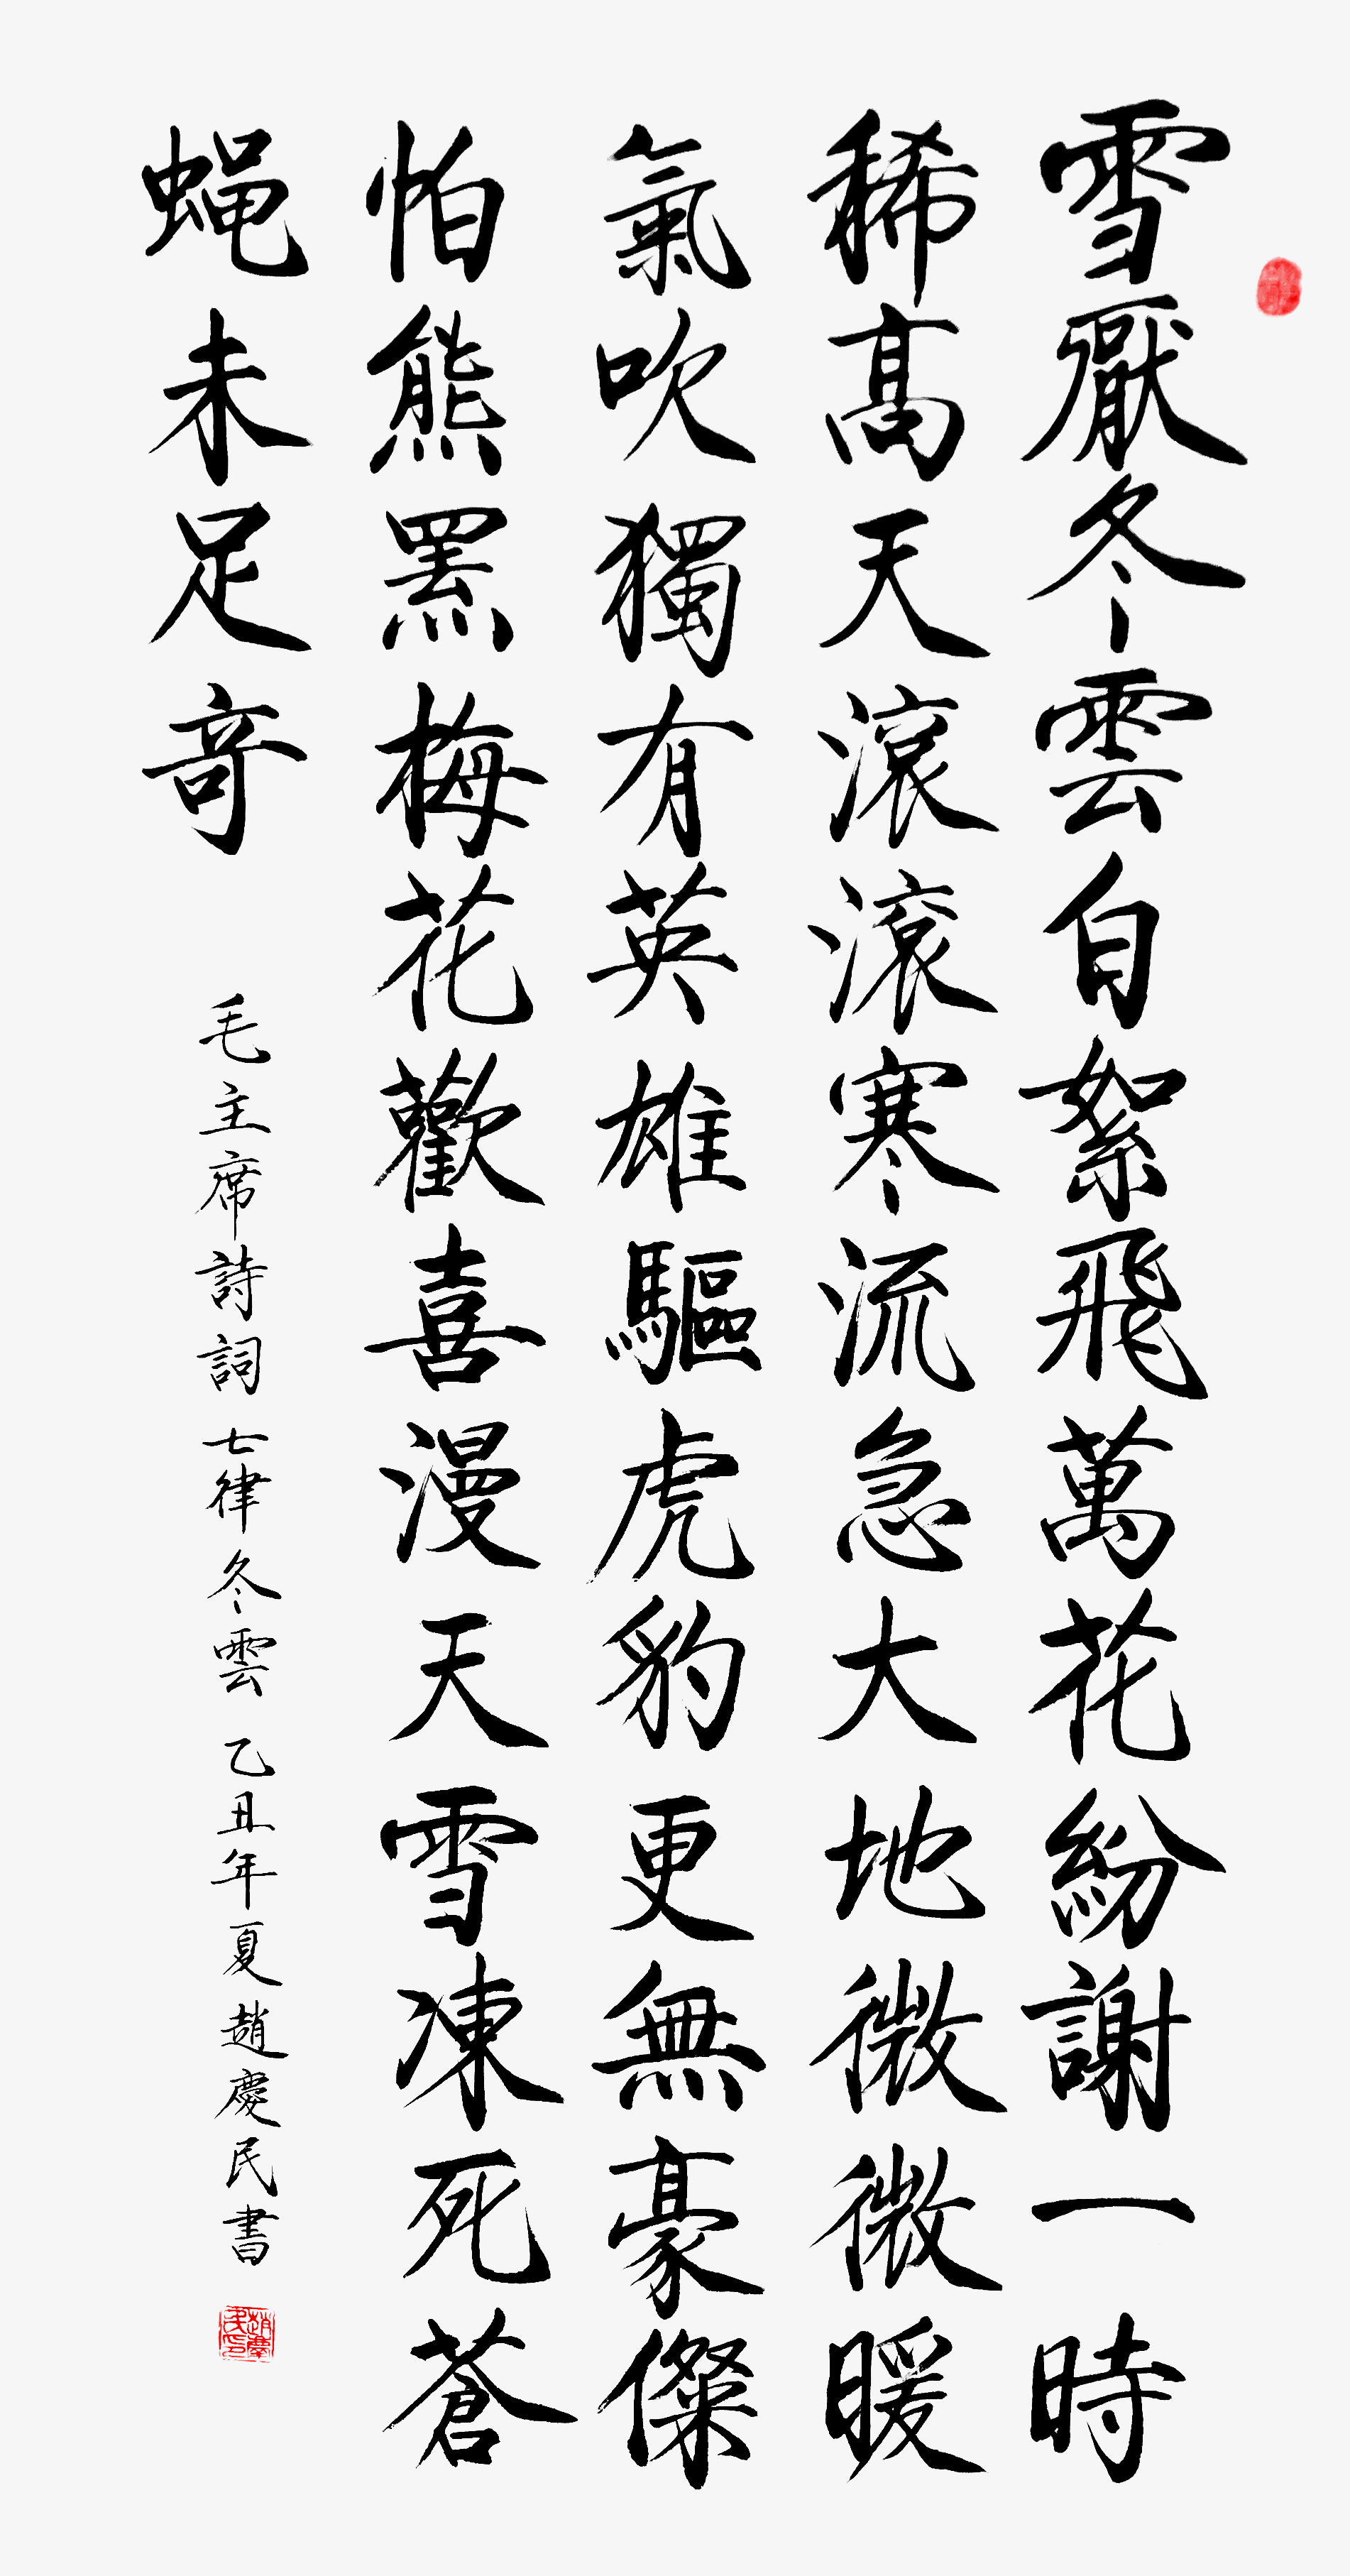 雪厭冬雲白絮飛萬花紛謝一時
稀高天滾滾寒流急大地微微暖
氣吹獨有英雄驅虎豹更無豪傑
怕熊罴梅花歡喜漫天雪凍死蒼
蝇未足奇
毛主席詩詞七律冬雲 乙丑年夏趙慶民書
趙慶民印